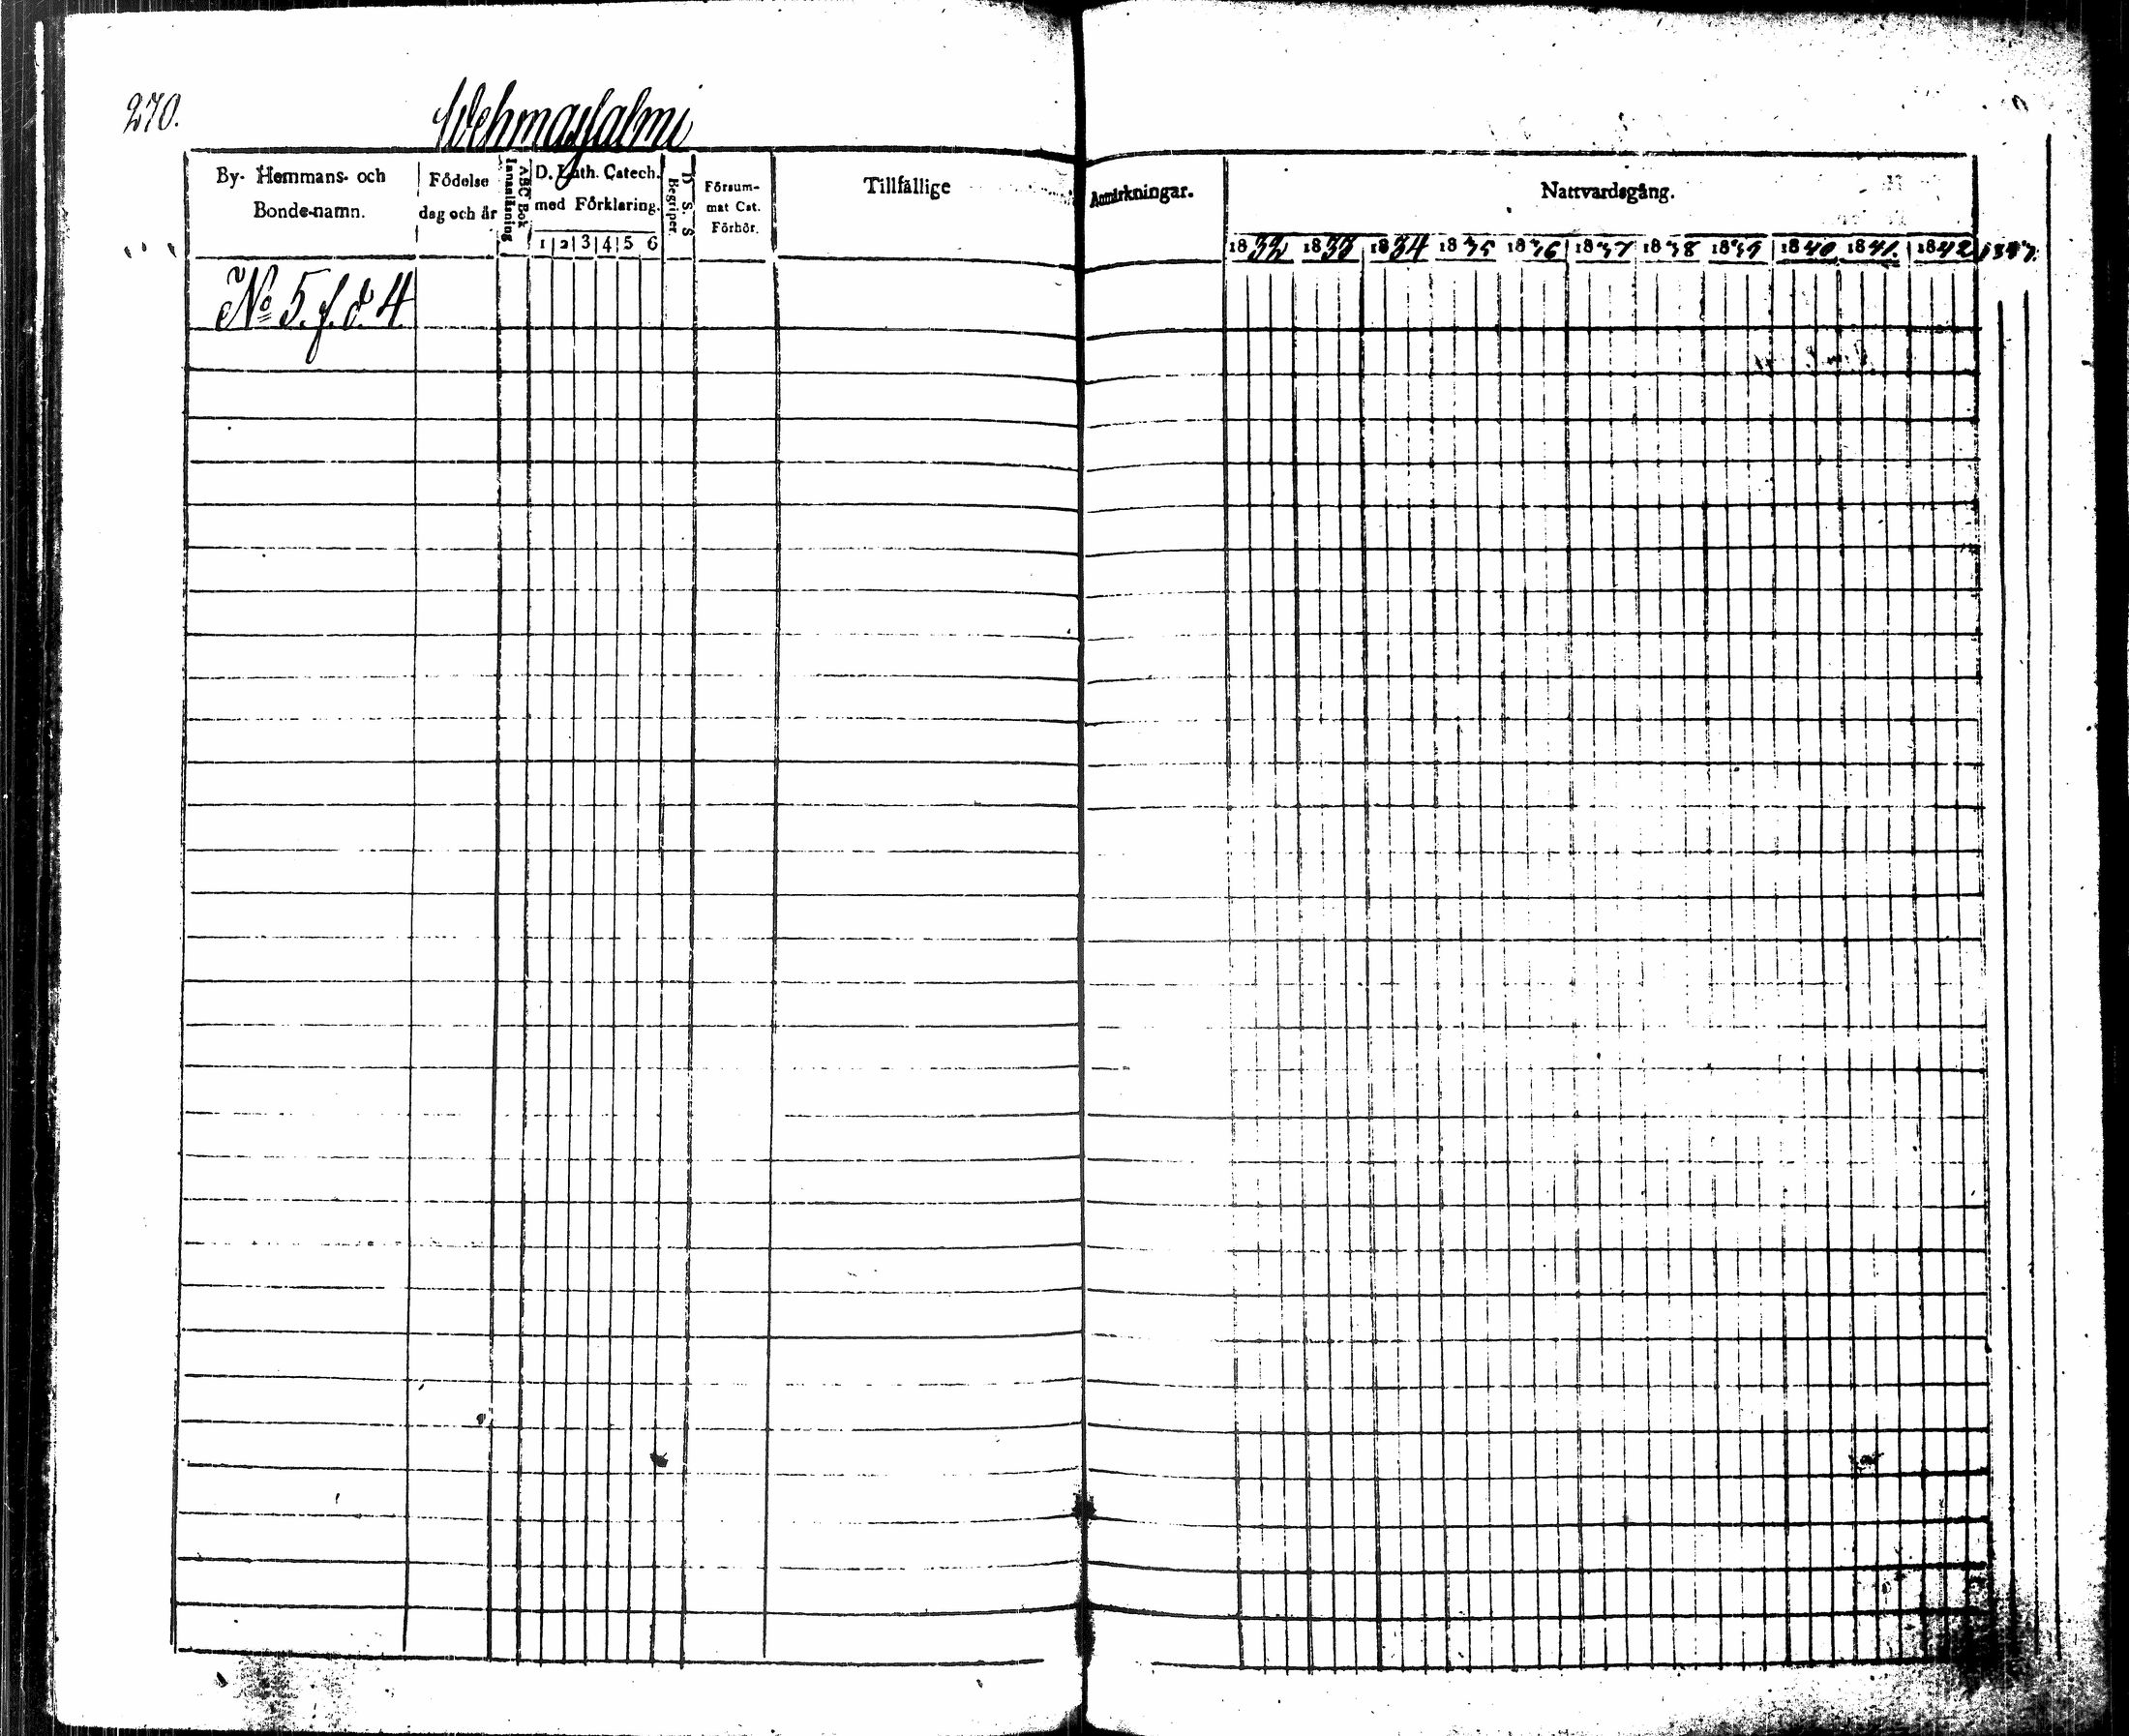 270.
Wehmasjalmi
By- Hemmans- och Bonde-namn.
Födelse dag och år
Innanläsning
ABC Bok
D. Luth. Catech. med Förklaring.
1 2 3 4 5 6
D. S. S
Begriper
Försum-
mat Cat.
Förhör.
Tillfällige Anmärkningar.
Nattvardsgång.
1832 1833 1834 1835 1836 1837 1838 1839 1840 1841. 1842 1843.
No 5. f. d. 4